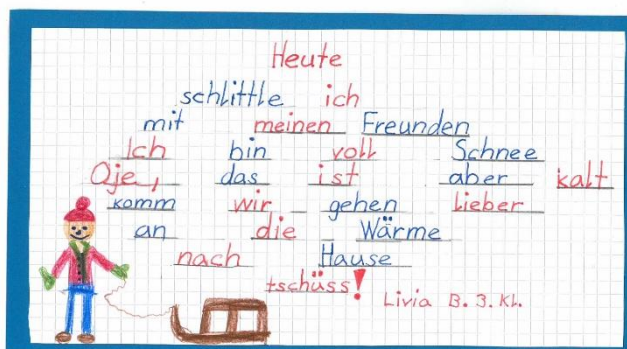 Heute
schlittle ich
mit meinen Freunden
Ich bin voll Schnee
Oje, das ist aber kalt
komm wir gehen lieber
an die Wärme
nach Hause
tschüss!
Livia B. 3. Kl.